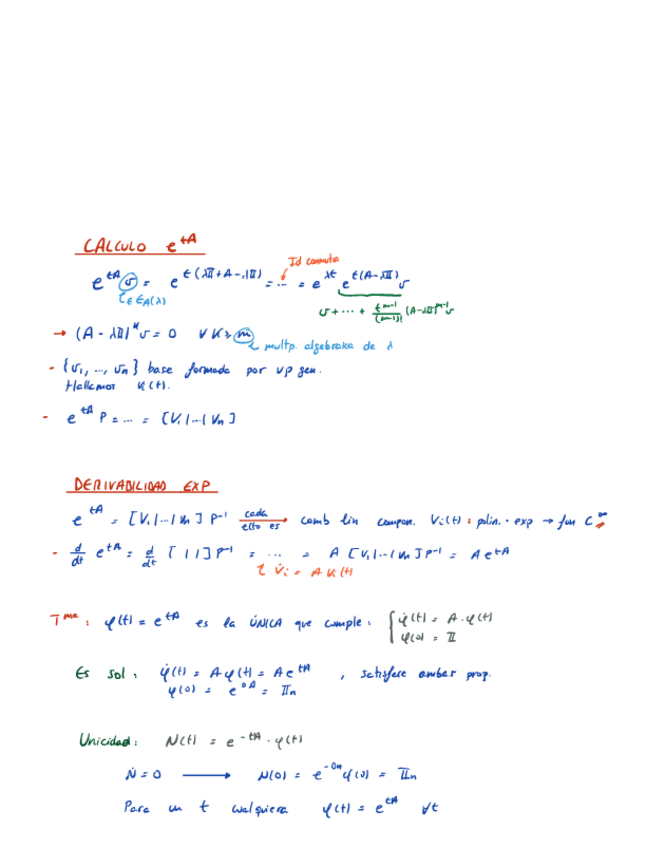 CALCULO e^{tA}
Id conmuta
e^{tA} v = e^{t(λ𝕀 + A - λ𝕀)} = ... = e^{λt} e^{t(A-λ𝕀)} v
∈ E_A(λ)
v + ... + \frac{t^{m-1}}{(m-1)!} (A-λ𝕀)^{m-1} v
→ (A - λ𝕀)^k v = 0 ∀ k ≥ m
multp. algebraica de λ
- {v_1, ..., v_n} base formada por vp gen.
Hallamos V_i(t).
- e^{tA} P = ... = [V_1|...|V_n]
DERIVABILIDAD EXP
e^{tA} = [V_1|...|V_n] P^{-1} cada elto es → comb lin compon. V_i(t) : polin. · exp → fun C^∞
- \frac{d}{dt} e^{tA} = \frac{d}{dt} [ | | ] P^{-1} = ... = A [V_1|...|V_n] P^{-1} = A e^{tA}
V̇_i = A V_i(t)
Tma: φ(t) = e^{tA} es la ÚNICA que cumple: { φ̇(t) = A · φ(t)
φ(0) = 𝕀
Es sol: φ̇(t) = A φ(t) = A e^{tA} , satisface ambas prop.
φ(0) = e^{0A} = 𝕀_n
Unicidad: N(t) = e^{-tA} · φ(t)
Ṅ = 0 → N(0) = e^{-0A} φ(0) = 𝕀_n
Para un t cualquiera φ(t) = e^{tA} ∀t